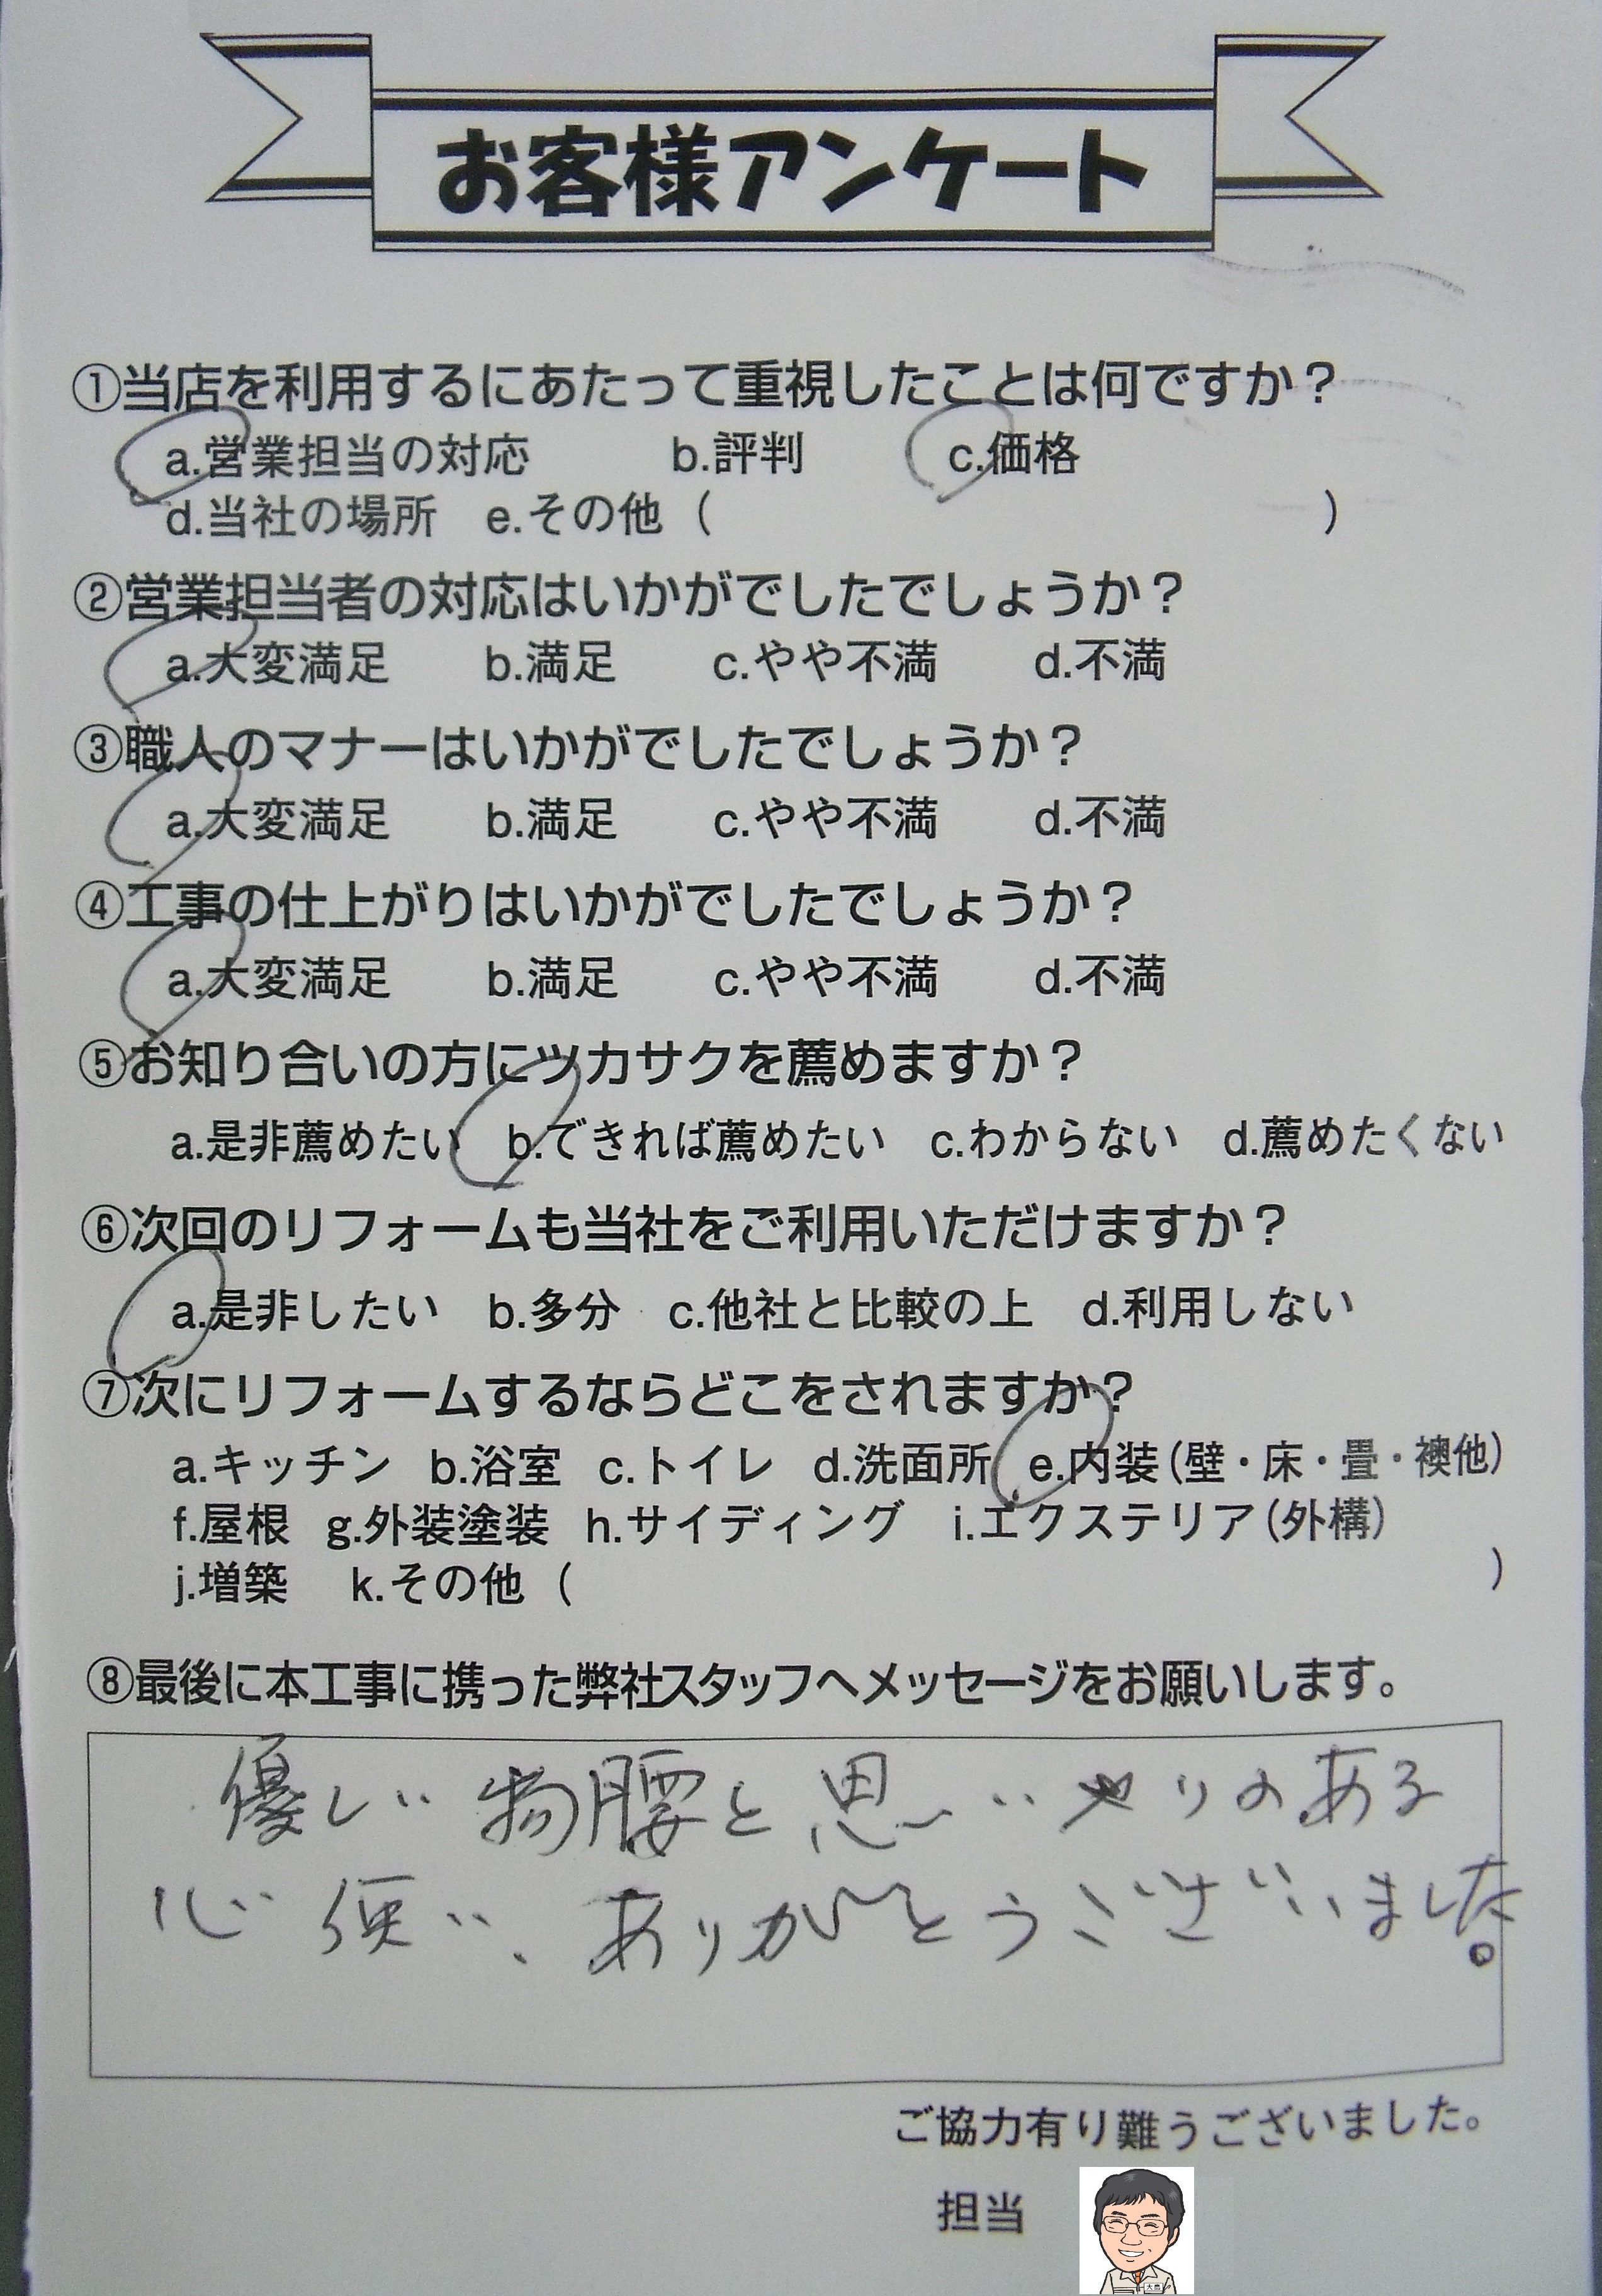 お客様アンケート
①当店を利用するにあたって重視したことは何ですか？
a.営業担当の対応 b.評判 c.価格
d.当社の場所 e.その他（ ）
②営業担当者の対応はいかがでしたでしょうか？
a.大変満足 b.満足 c.やや不満 d.不満
③職人のマナーはいかがでしたでしょうか？
a.大変満足 b.満足 c.やや不満 d.不満
④工事の仕上がりはいかがでしたでしょうか？
a.大変満足 b.満足 c.やや不満 d.不満
⑤お知り合いの方にツカサクを薦めますか？
a.是非薦めたい b.できれば薦めたい c.わからない d.薦めたくない
⑥次回のリフォームも当社をご利用いただけますか？
a.是非したい b.多分 c.他社と比較の上 d.利用しない
⑦次にリフォームするならどこをされますか？
a.キッチン b.浴室 c.トイレ d.洗面所 e.内装（壁・床・畳・襖他）
f.屋根 g.外装塗装 h.サイディング i.エクステリア（外構）
j.増築 k.その他（ ）
⑧最後に本工事に携った弊社スタッフへメッセージをお願いします。
優しい物腰と思いやりのある
心使い、ありがとうございました。
ご協力有り難うございました。
担当